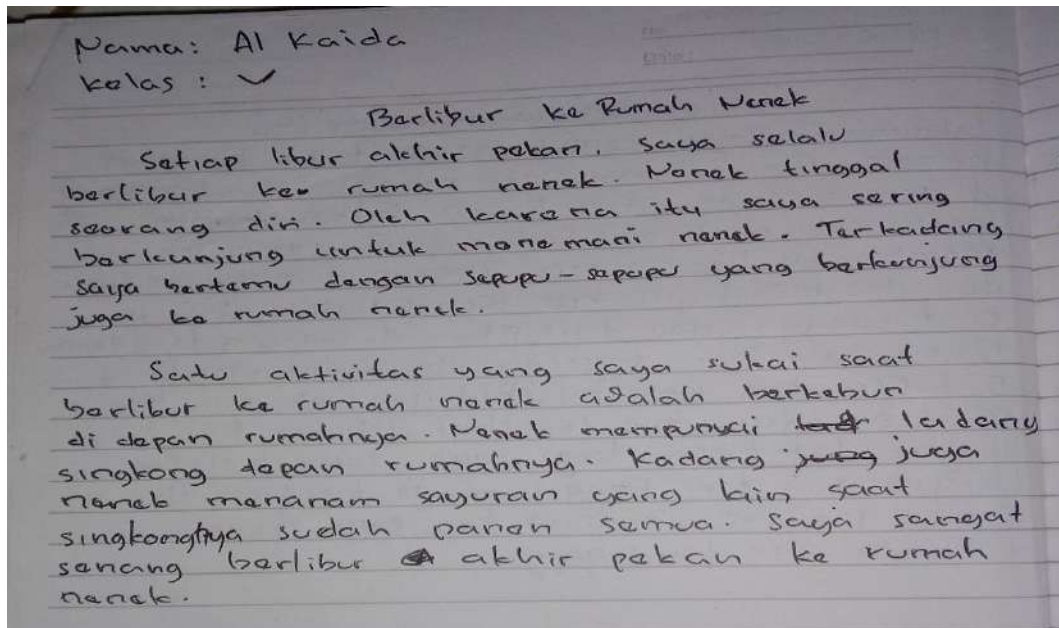 Nama: Al Kaida
Kelas : V
Berlibur ke Rumah Nenek
Setiap libur akhir pekan. saya selalu
berlibur ke rumah nenek. Nenek tinggal
seorang diri. Oleh karena itu saya sering
berkunjung untuk menemani nenek. Terkadang
saya bertemu dengan sepupu-sepupu yang berkunjung
juga ke rumah nenek.
Satu aktivitas yang saya sukai saat
berlibur ke rumah nenek adalah berkebun
di depan rumahnya. Nenek mempunyai ladang
singkong depan rumahnya. Kadang juga
nenek menanam sayuran yang lain saat
singkongnya sudah panen semua. Saya sangat
senang berlibur akhir pekan ke rumah
nenek.